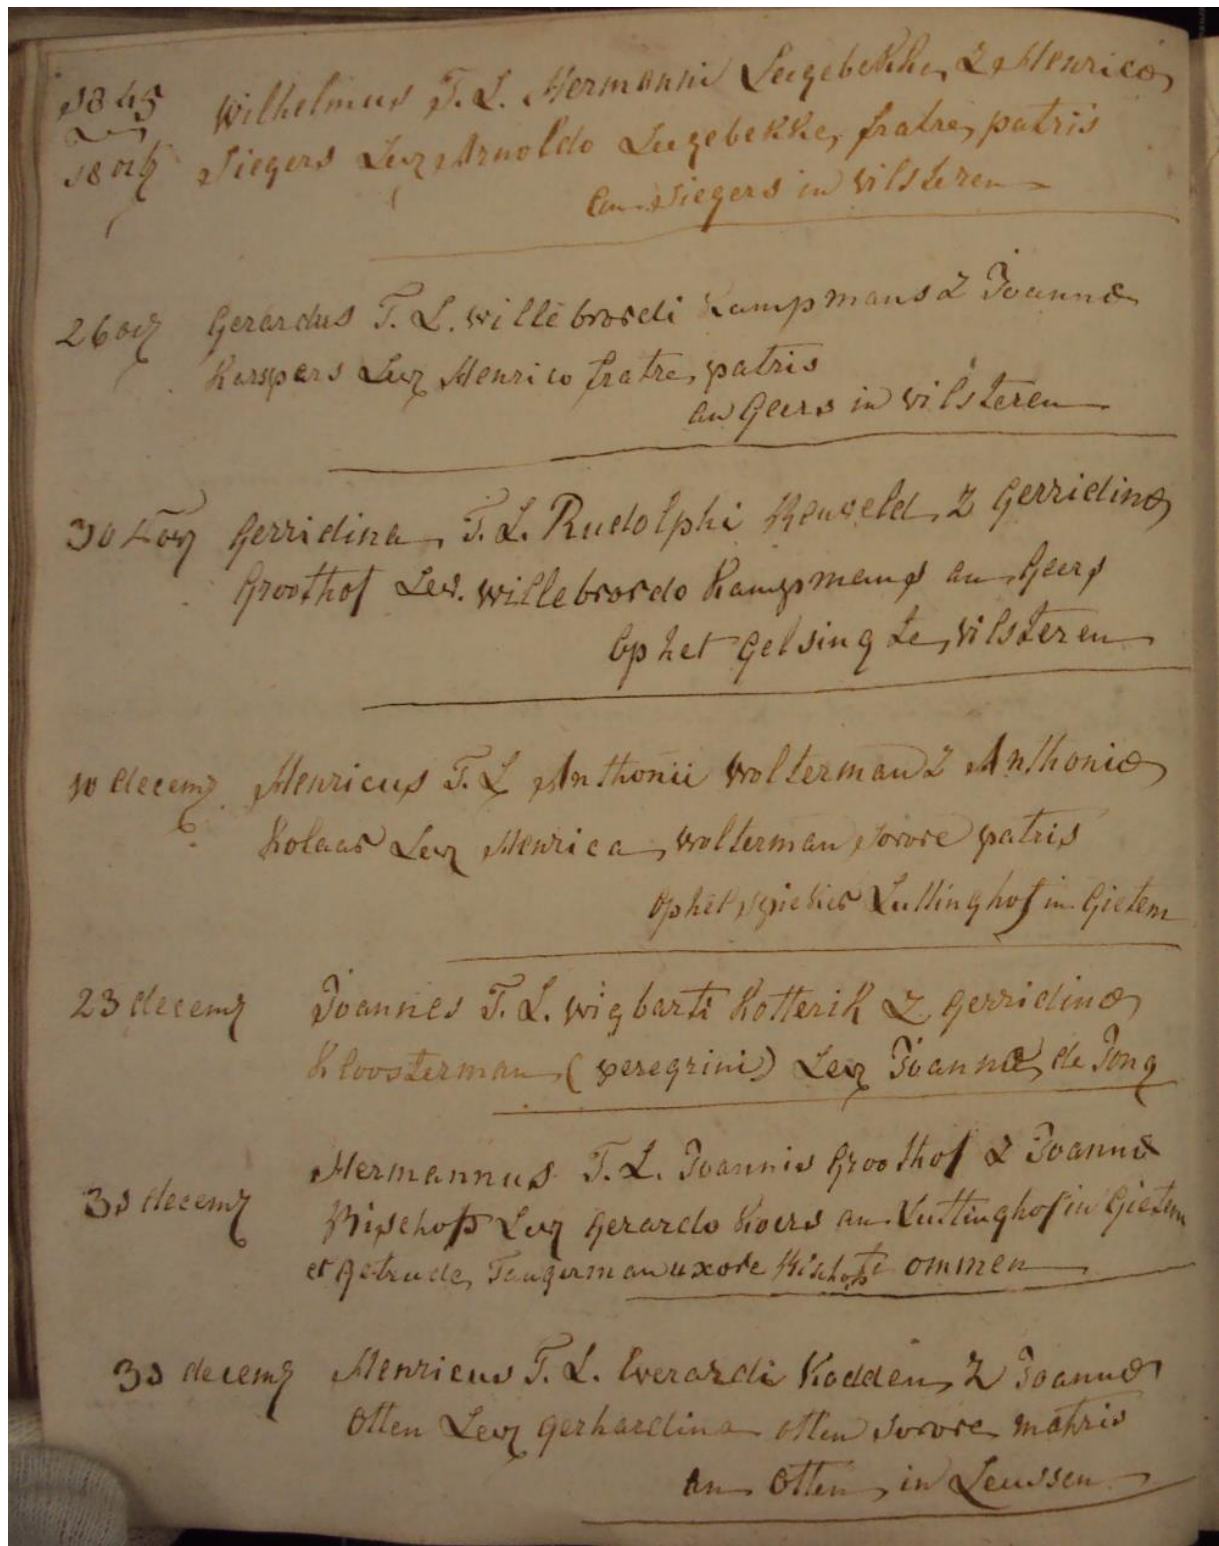 1845 Wilhelmus F. L. Hermanni Lugebekke & Henricæ
18 Siegers Lev Arnoldo Lugebekke fratre patris
an Siegers in Vilsteren
26 Gerardus F. L. Willebrordi Kampmans & Joannæ
Kaspers Lev Henrico fratre patris
an Geers in Vilsteren
30 Gerridina F. L. Rudolphi & Gerridinæ
Groothof Lev. Willebrordo Kampmans an Geers
op het Gelsing te Vilsteren
10 decem Henricus F. L Anthonii Wolterman & Anthoniæ
Kolaar Lev Henrica Wolterman sorore patris
op het spieker Luttinghof in Gietem
23 decem Joannes F. L. Wigbarti Kotterik & Gerridinæ
Kloosterman (peregrini) Lev Joanna de Jong
decem Hermannus F. L. Joannis Groothof & Joannæ
Bischops Lev Gerardo Koers an Luttinghof in Gietem
et Getrude uxore Ommen
decem Henricus F. L. Everardi Kodden & Joannæ
Otten Lev Gerhardina Otten sorore matris
an Otten in Leussen